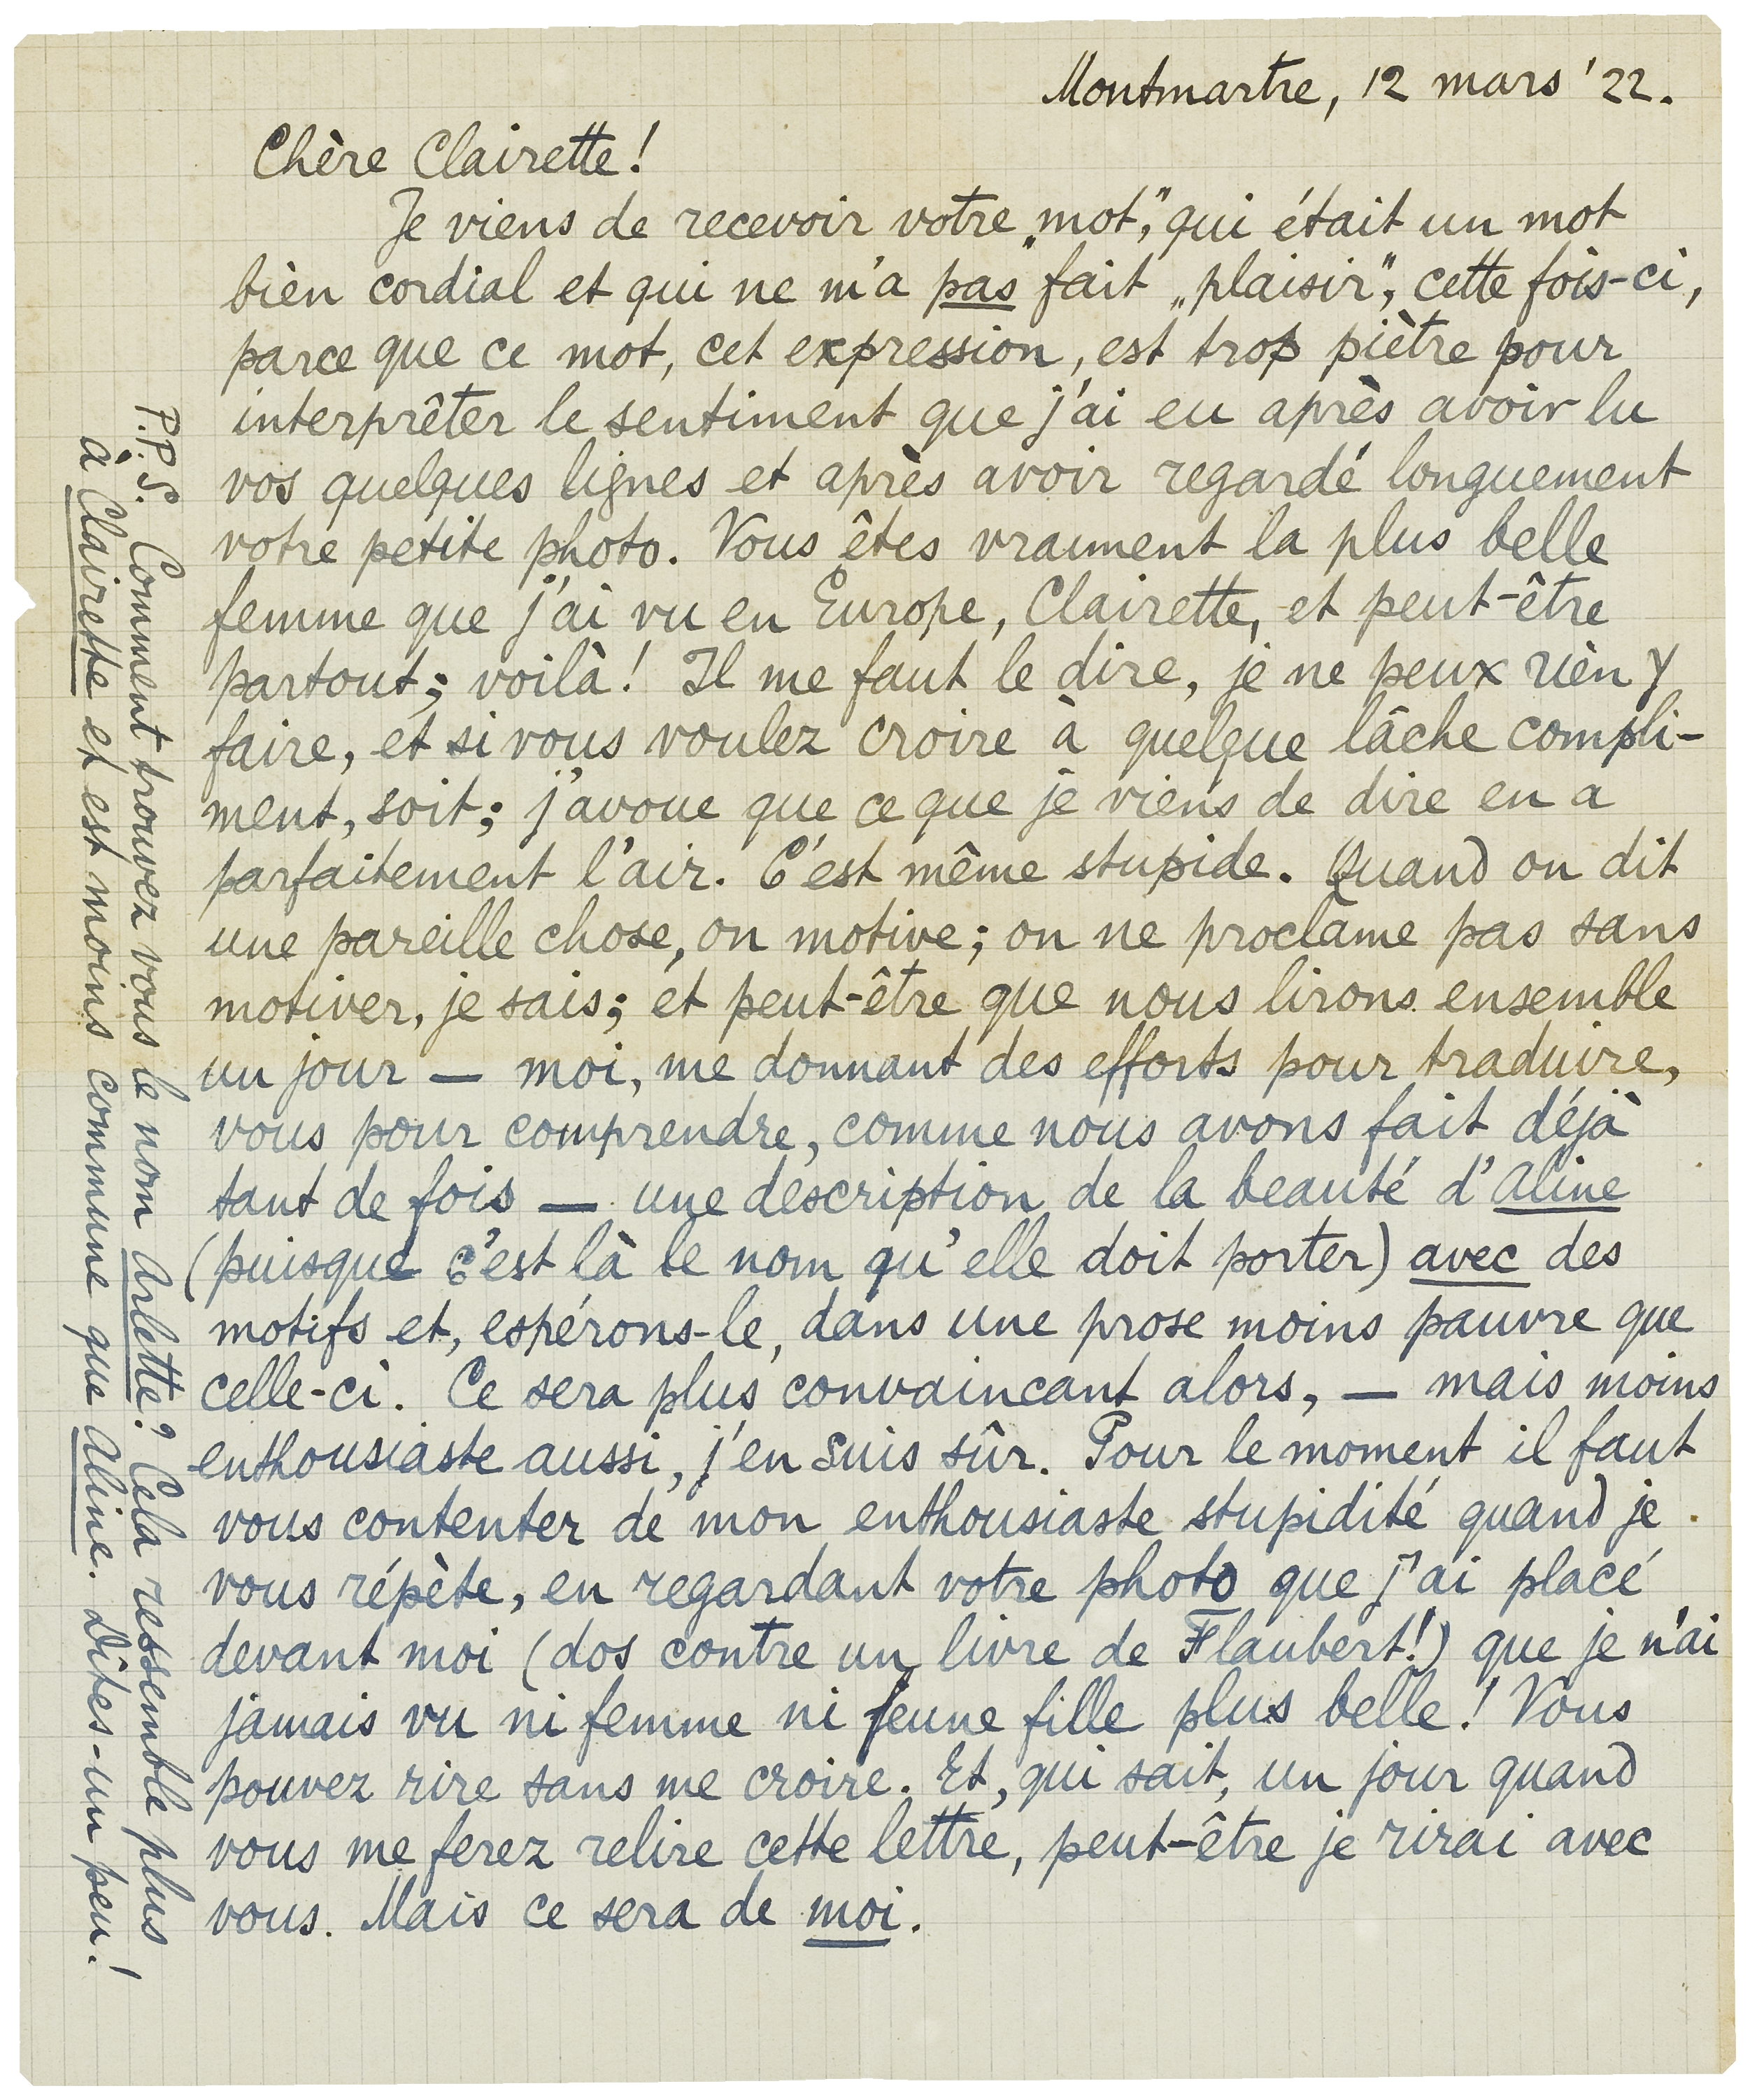 Montmartre, 12 mars '22.
Chère Clairette!
Je viens de recevoir votre „mot,” qui était un mot
bien cordial et qui ne m'a pas fait „plaisir”, cette fois-ci,
parce que ce mot, cet expression, est trop piètre pour
interprêter le sentiment que j'ai eu après avoir lu
vos quelques lignes et après avoir regardé longuement
votre petite photo. Vous êtes vraiment la plus belle
femme que j'ai vu en Europe, Clairette, et peut-être
partout; voilà! Il me faut le dire, je ne peux rien y
faire, et si vous voulez croire à quelque lâche compli-
ment, soit; j'avoue que ce que je viens de dire en a
parfaitement l'air. C'est même stupide. Quand on dit
une pareille chose, on motive; on ne proclame pas sans
motiver, je sais; et peut-être que nous lirons ensemble
un jour — moi, me donnant des efforts pour traduire,
vous pour comprendre, comme nous avons fait déjà
tant de fois — une description de la beauté d'Aline
(puisque c'est là le nom qu'elle doit porter) avec des
motifs et, espérons-le, dans une prose moins pauvre que
celle-ci. Ce sera plus convaincant alors, — mais moins
enthousiaste aussi, j'en suis sûr. Pour le moment il faut
vous contenter de mon enthousiaste stupidité quand je
vous répète, en regardant votre photo que j'ai placé
devant moi (dos contre un livre de Flaubert!) que je n'ai
jamais vu ni femme ni jeune fille plus belle! Vous
pouvez rire sans me croire. Et, qui sait, un jour quand
vous me ferez relire cette lettre, peut-être je rirai avec
vous. Mais ce sera de moi.
P.P.S. Comment trouvez vous le nom Arlette? Cela ressemble plus
à Clairette et est moins commune que Aline. Dites-un peu!